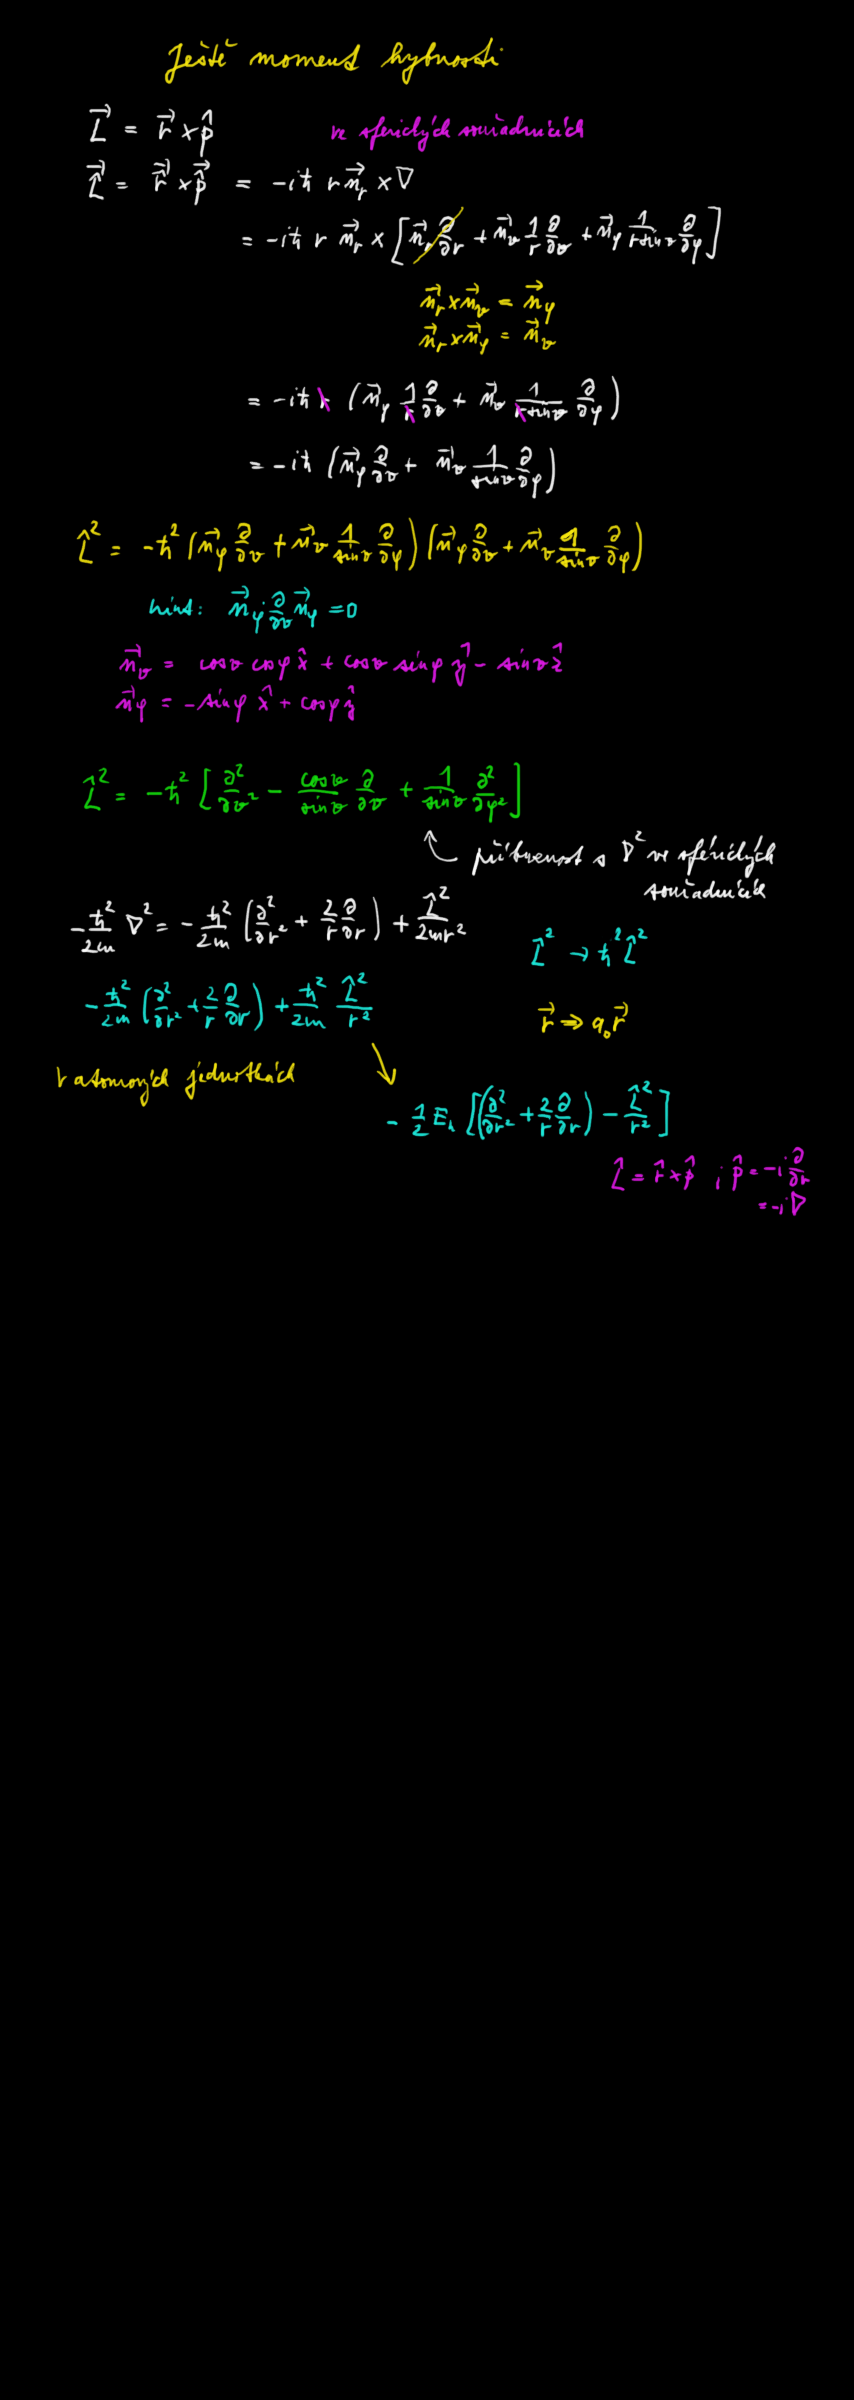 Ještě moment hybnosti
L⃗ = r⃗ × p̂
ve sferických souřadnicích
L̂⃗ = r̂⃗ × p̂⃗ = -iħ r n⃗_r × ∇
= -iħ r n⃗_r × [n⃗_r ∂/∂r + n⃗_ϑ 1/r ∂/∂ϑ + n⃗_φ 1/(r sinϑ) ∂/∂φ]
n⃗_r × n⃗_ϑ = n⃗_φ
n⃗_r × n⃗_φ = n⃗_ϑ
= -iħ r (n⃗_φ 1/r ∂/∂ϑ + n⃗_ϑ 1/(r sinϑ) ∂/∂φ)
= -iħ (n⃗_φ ∂/∂ϑ + n⃗_ϑ 1/sinϑ ∂/∂φ)
L̂² = -ħ² (n⃗_φ ∂/∂ϑ + n⃗_ϑ 1/sinϑ ∂/∂φ) (n⃗_φ ∂/∂ϑ + n⃗_ϑ 1/sinϑ ∂/∂φ)
hint: n⃗_φ · ∂/∂ϑ n⃗_φ = 0
n⃗_ϑ = cosϑ cosφ x̂ + cosϑ sinφ ŷ - sinϑ ẑ
n⃗_φ = -sinφ x̂ + cosφ ŷ
L̂² = -ħ² [∂²/∂ϑ² - cosϑ/sinϑ ∂/∂ϑ + 1/sinϑ ∂²/∂φ²]
příbuznost s ∇² ve sférických
souřadnicích
-ħ²/2m ∇² = -ħ²/2m (∂²/∂r² + 2/r ∂/∂r) + L̂²/2mr²
L̂² → ħ² L̂²
-ħ²/2m (∂²/∂r² + 2/r ∂/∂r) + ħ²/2m L̂²/r²
r⃗ → a₀ r⃗
v atomových jednotkách
- 1/2 E_h [(∂²/∂r² + 2/r ∂/∂r) - L̂²/r²]
L̂ = r̂ × p̂ ; p̂ = -i ∂/∂r
= -i ∇